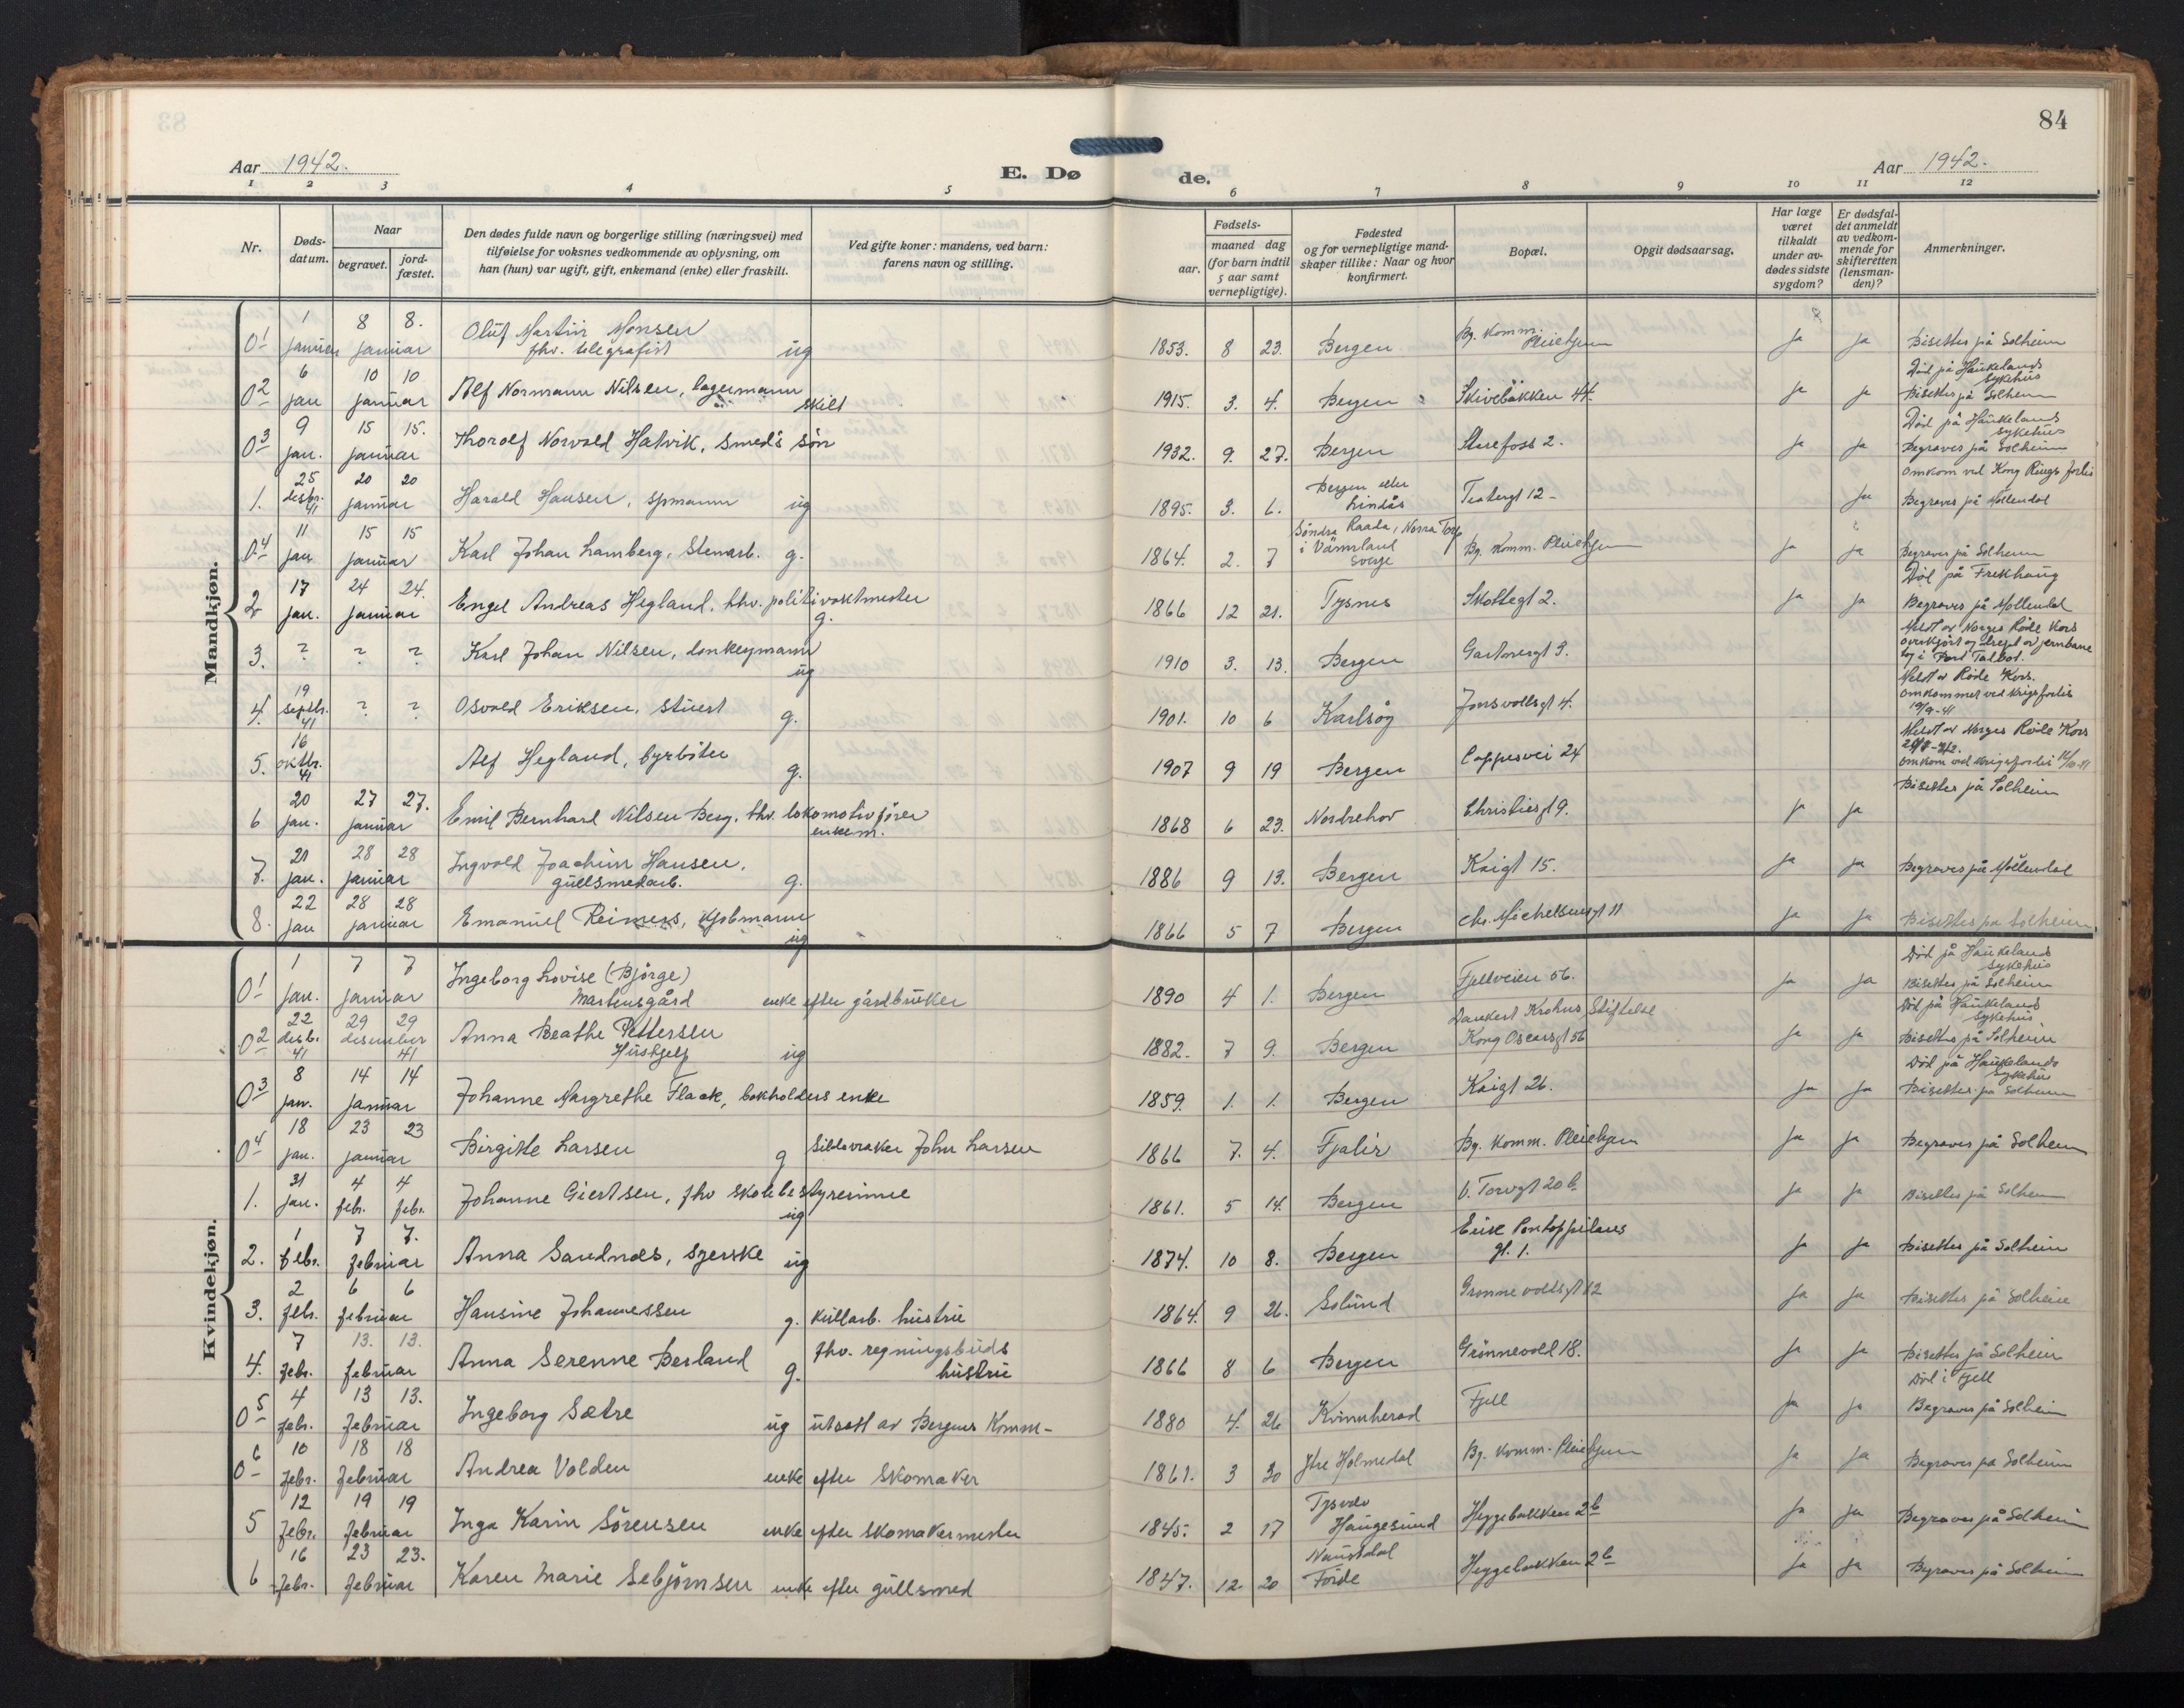 84
Aar 1942.
E. Døde.
Aar 1942.
1 2 3 4 5 6 7 8 9 10 11 12
Nr.
Døds-
datum.
Naar
begravet.
jord-
fæstet.
Den dødes fulde navn og borgerlige stilling (næringsvei) med
tilføielse for voksnes vedkommende av oplysning, om
han (hun) var ugift, gift, enkemand (enke) eller fraskilt.
Ved gifte koner: mandens, ved barn:
farens navn og stilling.
Fødsels-
aar.
maaned dag
(for barn indtil
5 aar samt
vernepligtige).
Fødested
og for vernepligtige mand-
skaper tillike: Naar og hvor
konfirmert.
Bopæl.
Opgit dødsaarsag.
Har læge
været
tilkaldt
under av-
dødes sidste
sygdom?
Er dødsfal-
det anmeldt
av vedkom-
mende for
skifteretten
(lensman-
den)?
Anmerkninger.
Mandkjøn.
01 1 januar 8 januar 8. Oluf Martin Monsen
fhv. telegrafist ug 1853. 8 23. Bergen Bg. Komm. Pleiehjem ja ja Bisettes på Solheim
02 6 jan 10 januar 10 Alf Normann Nilsen, lagermann
skilt 1915. 3. 4. Bergen Skivebakken 44. ja ja Död på Haukelands
sykehus
Bisettes på Solheim
03 9 jan. 15 januar 15. Thorolf Norvald Hatvik, smeds sön 1932. 9. 27. Bergen Sturefoss 2. ja ja Död på Haukelands
sykehus
Begraves på Solheim
1. 25 desbr. 41 20 januar 20 Harald Hansen, spmann ug 1895. 3. 6. Bergen eller
Lindås Teatergt 12 - ja Omkom ved Krigs forlis
Begraves på Möllendal
04 11 jan 15 januar 15 Karl Johan Lamberg, Stenarb. g. 1864. 2. 7 Söndra Raada, Norra
i Värmland
Sverge Bg. Komm. Pleiehjem ja ja Begraves på Solheim
2 17 jan. 24 januar 24. Engel Andreas Hegland, fhv. politivaktmester
g. 1866 12 21. Tysnes Skottegt 2. ja ja Död på Frekhaug
Begraves på Möllendal
3. ? ? ? Karl Johan Nilsen, donkeymann
ug 1910 3. 13. Bergen Gartnergt 9. Meldt av Norges Röde Kors
overkjört og drept av jernbane
tog i Port Talbot.
4. 19 septbr. 41 ? ? Osvald Eriksen, stuert g. 1901. 10 6 Karlsöy Jonsvollsgt 4. Meldt av Röde Kors.
Omkommet ved Krigsforlis
19/9-41
5. 16 oktbr. 41 Alf Hegland, fyrböter g. 1907 9 19 Bergen Cappesvei 24 Meldt av Norges Röde Kors
Omkom ved krigsforlis 16/10-41
6 20 jan. 27 januar 27. Emil Bernhard Nilsen Berg, fhv. lokomotivförer
enkem. 1868 6 23. Nordrehov Christiesgt 9. ja ja Bisettes på Solheim
7. 21 jan. 28 januar 28 Ingvald Joachim Hansen,
gullsmedarb. g. 1886 9 13. Bergen Kaigt 15. ja ja Begraves på Möllendal
8. 22 jan 28 januar 28 Emanuel Reimers, Kjöbmann
ug 1866 5 7 Bergen Chr. Michelsensgt 11 ja ja Bisettes på Solheim
Kvindekjøn.
01 1 jan. 7 januar 7 Ingeborg Lovise (Bjørge)
Martensgård enke efter gårdbruker 1890 4 1. Bergen Fjellveien 56. ja ja Död på Haukelands
sykehus
Bisettes på Solheim
02 22 desb. 41 29 desember 29 41 Anna Beathe Pettersen
Hushjelp ug 1882. 7 9. Bergen Dankert Krohns Stiftelse
Kong Oscarsgt 56 ja ja Död på Haukelands
sykehus
Bisettes på Solheim
03 8 jan. 14 januar 14 Johanne Margrethe Flaak, bokholders enke 1859. 1. 1. Bergen Kaigt 26. ja ja Död på Haukelands
sykehus
Bisettes på Solheim
04 18 jan. 23 januar 23 Birgitte Larsen g Sildevraker John Larsen 1866 7. 4. Fjaler Bg. Komm. Pleiehjem ja ja Begraves på Solheim
1. 31 jan. 4 febr. 4 febr. Johanne Giertsen, fhv skolebestyrerinne
ug 1861. 5 14. Bergen V. Torvgt 20 b. ja ja Bisettes på Solheim
2. 1 febr. 7 februar 7. Anna Sandnes, syerske ug 1874. 10 8. Bergen Erik Pontoppidans
gt. 1. ja ja Bisettes på Solheim
3. 2 febr. 6 februar 6 Hansine Johannessen g. Kullarb. hustru 1864. 9 26. Solund Grönnevollsgt 12 ja ja Bisettes på Solheim
4. 7 febr. 13. februar 13. Anna Serenne Berland g. fhv. regningsbuds
hustru 1866 8 6 Bergen Grönnevold 18. ja ja Bisettes på Solheim
05 4 febr. 13 februar 13. Ingeborg Sætre ug utsatt av Bergens Komm- 1880 4. 26 Kvinnherad Fjell ja ja Död i Fjell
Begraves på Solheim
06 10 febr. 18 februar 18 Andrea Volden enke efter Skomaker 1861. 3 30 Ytre Holmedal Bg. Komm. Pleiehjem ja ja Begraves på Solheim
5 12 febr. 19 februar 19 Inga Karin Sörensen enke efter skomakermester 1845. 2 17 Tysvær
Haugesund Heggebakken 2b ja ja Begraves på Solheim
6 16 febr. 23 februar 23. Karen Marie Sebjörnsen enke efter gullsmed 1847. 12. 20 Naustdal
Förde Heggebakken 2b ja ja Begraves på Solheim